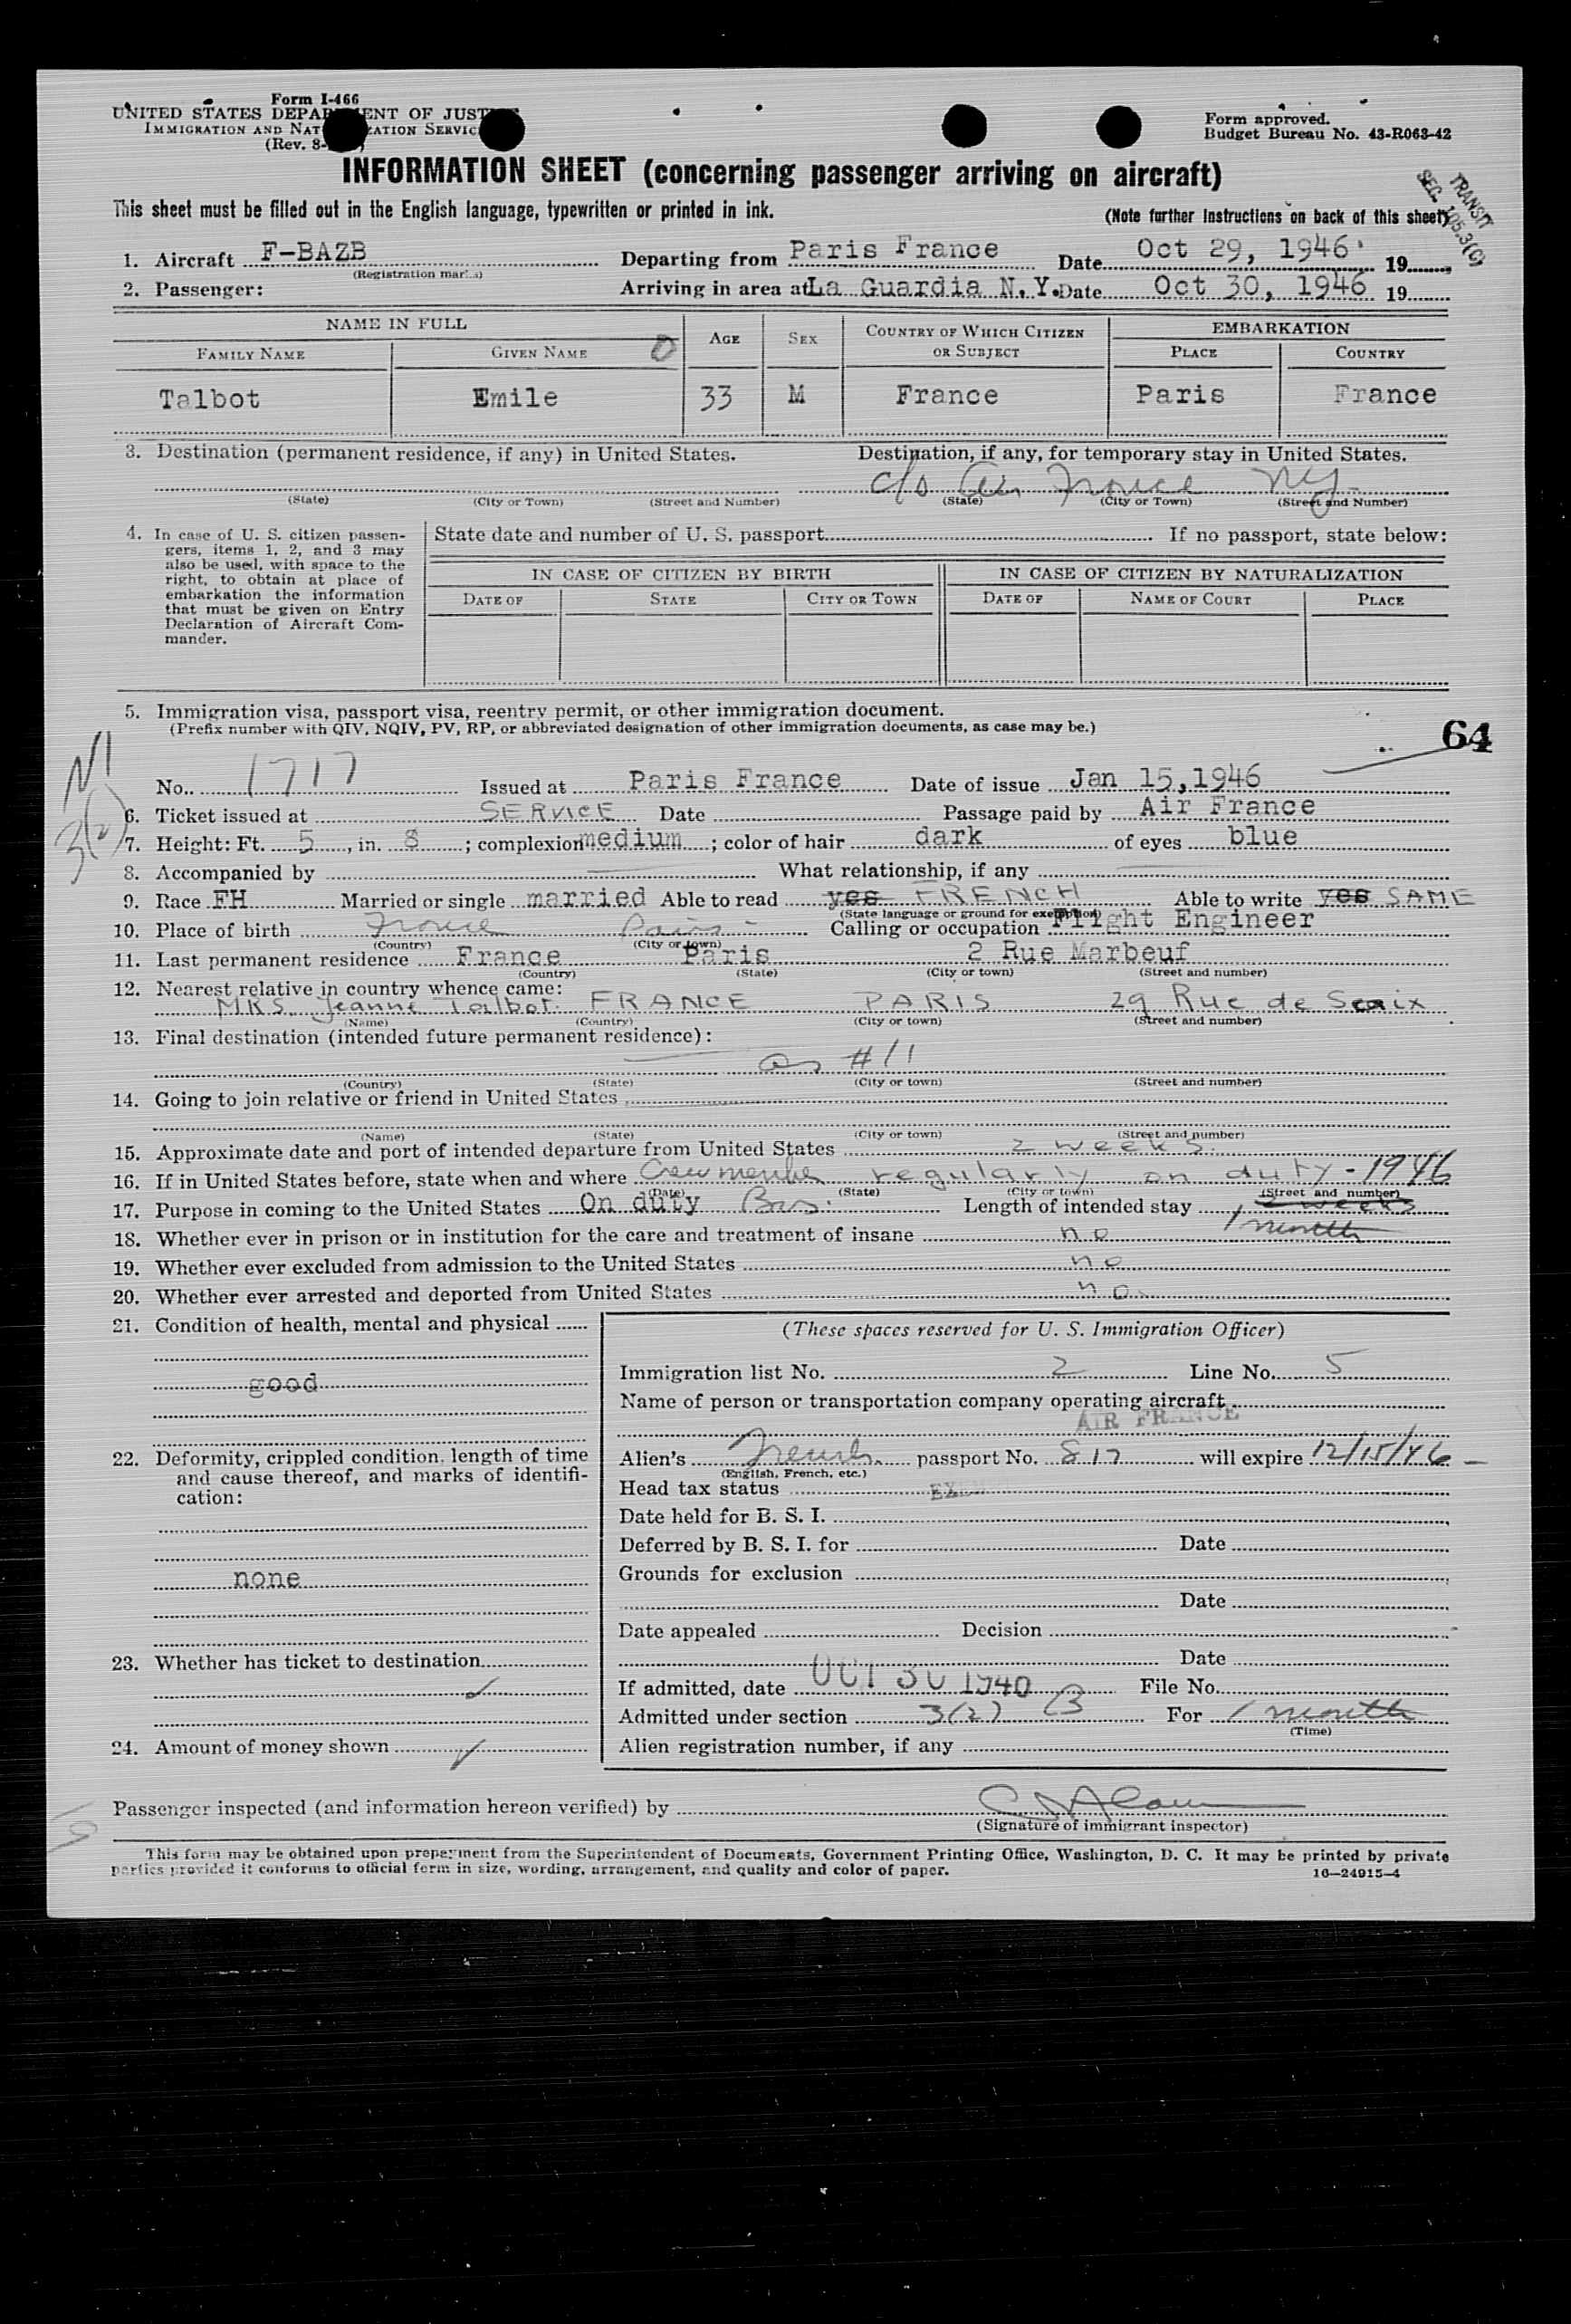 Form I-466
UNITED STATES DEPARTMENT OF JUST
IMMIGRATION AND NAT ZATION SERVIC
(Rev. 8-
Form approved.
Budget Bureau No. 43-R063-42
INFORMATION SHEET (concerning passenger arriving on aircraft)
TRANSIT
SEC. 105.3(C)
This sheet must be filled out in the English language, typewritten or printed in ink. (Note further instructions on back of this sheet)
1. Aircraft F-BAZB Departing from Paris France Date Oct 29, 1946 19
(Registration marks)
2. Passenger: Arriving in area at La Guardia N.Y. Date Oct 30, 1946 19
NAME IN FULL AGE SEX COUNTRY OF WHICH CITIZEN OR SUBJECT EMBARKATION
FAMILY NAME GIVEN NAME PLACE COUNTRY
Talbot Emile 33 M France Paris France
3. Destination (permanent residence, if any) in United States. Destination, if any, for temporary stay in United States.
c/o Air France NY
(State) (City or Town) (Street and Number) (State) (City or Town) (Street and Number)
4. In case of U. S. citizen passen-
gers, items 1, 2, and 3 may
also be used, with space to the
right, to obtain at place of
embarkation the information
that must be given on Entry
Declaration of Aircraft Com-
mander.
State date and number of U. S. passport If no passport, state below:
IN CASE OF CITIZEN BY BIRTH IN CASE OF CITIZEN BY NATURALIZATION
DATE OF STATE CITY OR TOWN DATE OF NAME OF COURT PLACE
5. Immigration visa, passport visa, reentry permit, or other immigration document.
(Prefix number with QIV, NQIV, PV, RP, or abbreviated designation of other immigration documents, as case may be.)
64
NI
3(2)
No. 1717 Issued at Paris France Date of issue Jan 15, 1946
6. Ticket issued at SERVICE Date Passage paid by Air France
7. Height: Ft. 5, in. 8; complexion medium; color of hair dark of eyes blue
8. Accompanied by What relationship, if any
9. Race FH Married or single married Able to read yes FRENCH Able to write yes SAME
(State language or ground for exemption)
10. Place of birth France Paris Calling or occupation Flight Engineer
(Country) (City or town)
11. Last permanent residence France Paris 2 Rue Marbeuf
(Country) (State) (City or town) (Street and number)
12. Nearest relative in country whence came:
MRS. Jeanne Talbot FRANCE PARIS 29 Rue de Scaix
(Name) (Country) (City or town) (Street and number)
13. Final destination (intended future permanent residence):
as #11
(Country) (State) (City or town) (Street and number)
14. Going to join relative or friend in United States
(Name) (State) (City or town) (Street and number)
15. Approximate date and port of intended departure from United States 2 weeks.
16. If in United States before, state when and where Crewmember regularly on duty - 1946
(Date) (State) (City or town) (Street and number)
17. Purpose in coming to the United States On duty Bus. Length of intended stay 2 weeks
1 month
18. Whether ever in prison or in institution for the care and treatment of insane no
19. Whether ever excluded from admission to the United States no
20. Whether ever arrested and deported from United States no
21. Condition of health, mental and physical
good
22. Deformity, crippled condition, length of time
and cause thereof, and marks of identifi-
cation:
none
23. Whether has ticket to destination
24. Amount of money shown
(These spaces reserved for U. S. Immigration Officer)
Immigration list No. 2 Line No. 5
Name of person or transportation company operating aircraft
AIR FRANCE
Alien's French passport No. 817 will expire 12/15/46
(English, French, etc.)
Head tax status
Date held for B. S. I.
Deferred by B. S. I. for Date
Grounds for exclusion
Date
Date appealed Decision
Date
If admitted, date OCT 30 1946 File No.
Admitted under section 3(2) B For 1 month
(Time)
Alien registration number, if any
Passenger inspected (and information hereon verified) by
(Signature of immigrant inspector)
This form may be obtained upon prepayment from the Superintendent of Documents, Government Printing Office, Washington, D. C. It may be printed by private
parties provided it conforms to official form in size, wording, arrangement, and quality and color of paper. 16—24915-4